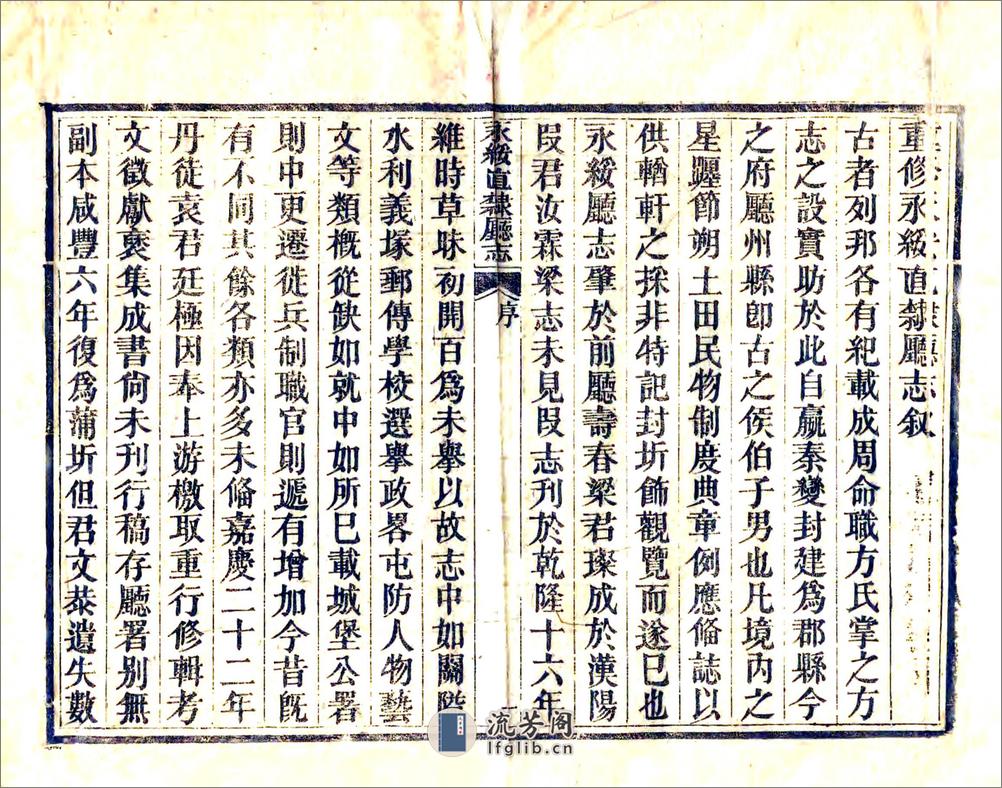 重修永綏直隸廳志叙
古者列邦各有紀載成周命職方氏掌之方
志之設實助於此自嬴秦變封建爲郡縣今
之府廳州縣卽古之侯伯子男也凡境內之
星躔節朔土田民物制度典章例應俻誌以
供輶軒之採非特記封圻飾觀覽而遂已也
永綏廳志肇於前廳壽春梁君璨成於漢陽
叚君汝霖梁志未見叚志刊於乾隆十六年
永綏直隸廳志
序
一
維時草昧初開百爲未舉以故志中如關隘
水利義塚郵傳學校選舉政畧屯防人物藝
文等類槪從缺如就中如所巳載城堡公署
則中更遷徙兵制職官則遞有增加今昔旣
有不同其餘各類亦多未俻嘉慶二十二年
丹徒袁君廷極因奉上游檄取重行修輯考
文徵獻裒集成書尙未刊行稿存廳署别無
副本咸豐六年復爲蒲圻但君文恭遺失數
流芳阁
lfglib.cn